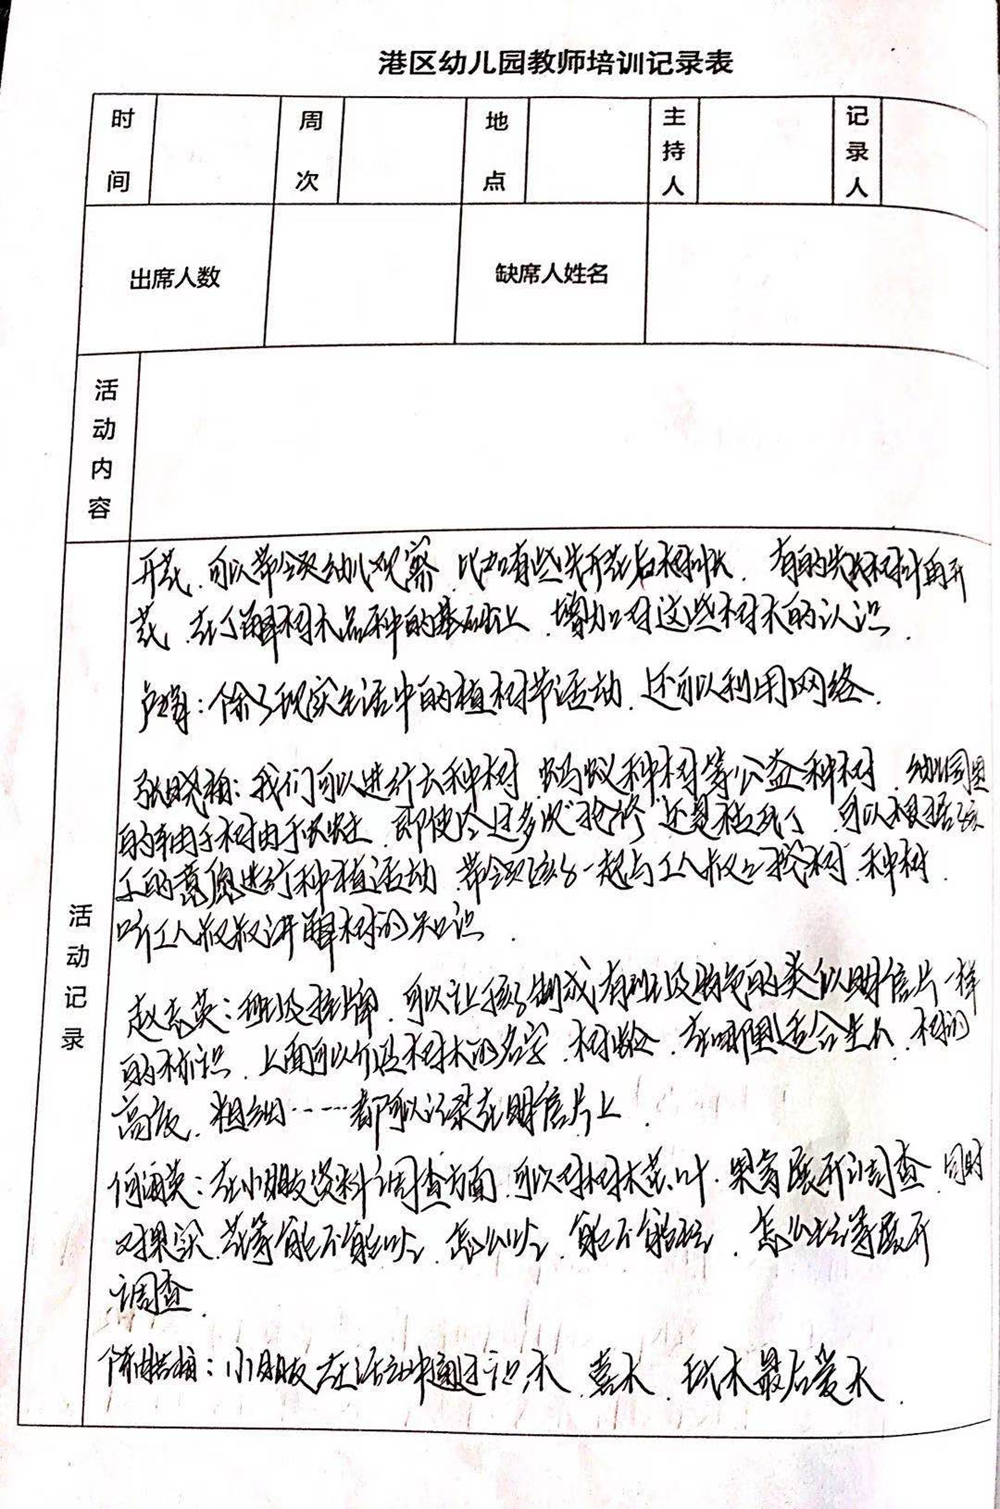 港区幼儿园教师培训记录表
时间 周次 地点 主持人 记录人
出席人数 缺席人姓名
活动内容
活动记录
开花，可以带领幼儿观察，比如有些先开花后树叶长，有的先长树叶再开
花，在了解树木品种的基础上，增加对这些树木的认识。
除了现实生活中的植树节活动，还可以利用网络。
张晓梅：我们可以进行云种树，蚂蚁种树等公益种树，幼儿园里
的树由于，即使经过多次"抢修"还是枯死了，可以根据孩
子的意愿进行种植活动，带领孩子一起与工人叔叔挖树，种树，
听工人叔叔讲解树的知识。
赵志英：班级挂牌，可以让孩子制成有班级特色的类似明信片一样
的标识，上面可以介绍树木的名字，树龄，在哪里适合生长，树的
高度，粗细……都可以记录在明信片上
何海英：在小朋友资料调查方面，可以对树木花、叶、果实展开调查，同时
对果实、花等能不能吃，怎么吃，能不能，怎么等展开
调查。
：小朋友在活动中通过识木，，木最后爱木。